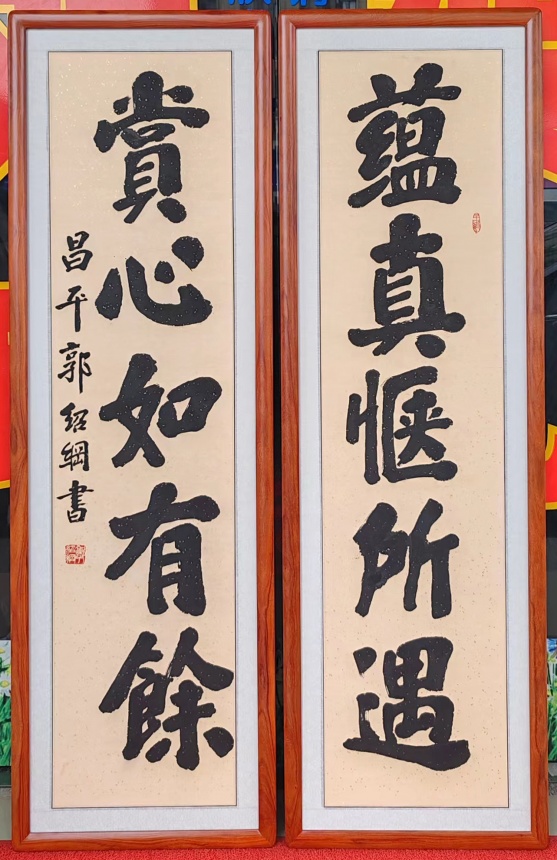 蕴真惬所遇
賞心如有餘
昌平郭绍綱書